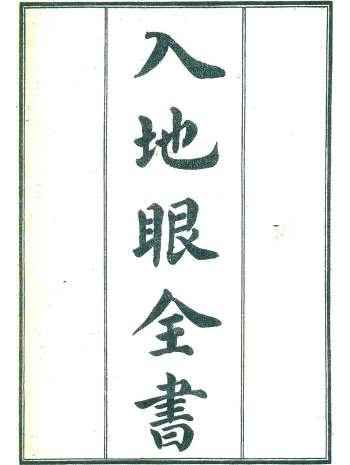 入地眼全書